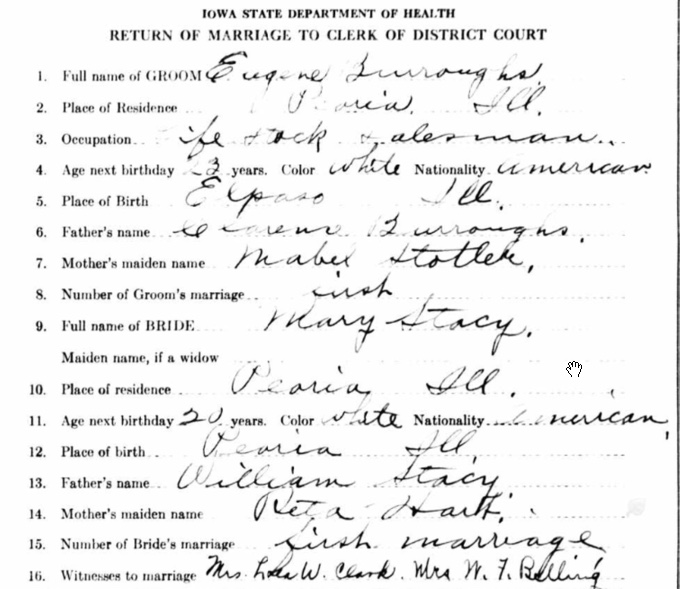 IOWA STATE DEPARTMENT OF HEALTH
RETURN OF MARRIAGE TO CLERK OF DISTRICT COURT
1. Full name of GROOM Eugene Burroughs
2. Place of Residence Peoria, Ill.
3. Occupation life stock salesman
4. Age next birthday 23 years. Color White Nationality American
5. Place of Birth Elpaso Ill.
6. Father's name Clarence Burroughs,
7. Mother's maiden name Mabel Stotler,
8. Number of Groom's marriage first
9. Full name of BRIDE Mary Stacy.
Maiden name, if a widow
10. Place of residence Peoria, Ill.
11. Age next birthday 20 years. Color White Nationality American,
12. Place of birth Peoria Ill.
13. Father's name William Stacy
14. Mother's maiden name Reta Hart.
15. Number of Bride's marriage first marriage
16. Witnesses to marriage Mrs. W. Clark. Mrs W. F.